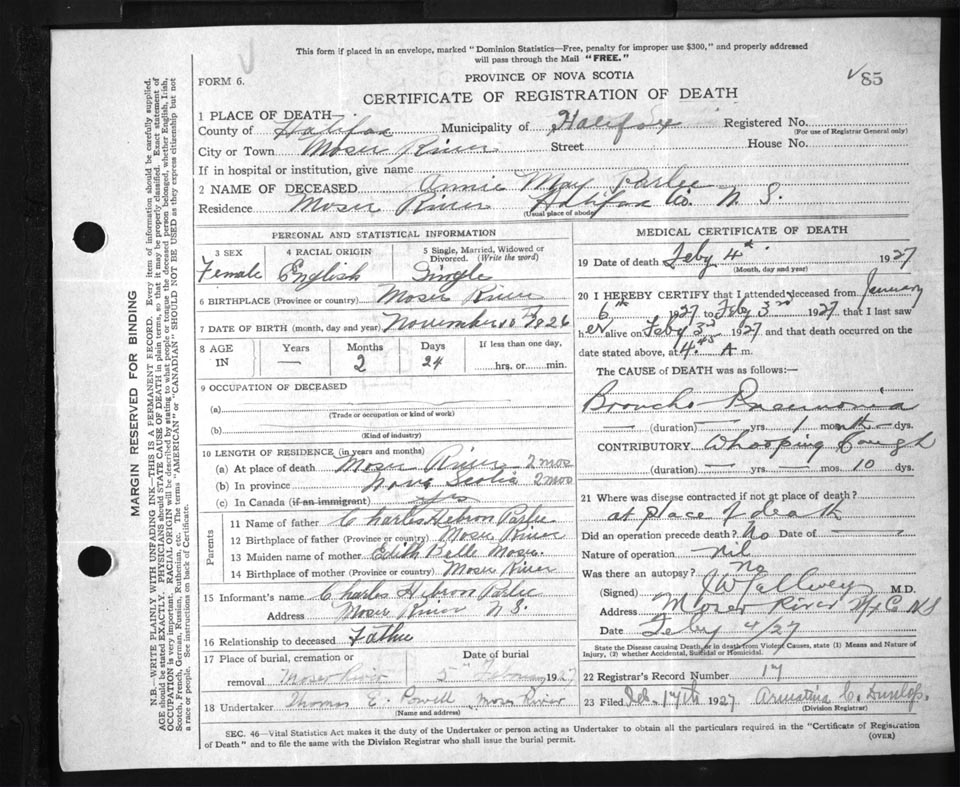 This form if placed in an envelope, marked "Dominion Statistics—Free, penalty for improper use $300," and properly addressed
will pass through the Mail "FREE."
FORM 6.
PROVINCE OF NOVA SCOTIA
√ 85
CERTIFICATE OF REGISTRATION OF DEATH
1 PLACE OF DEATH—
County of Halifax Municipality of Halifax Registered No.
(For use of Registrar General only)
City or Town Moser River Street House No.
If in hospital or institution, give name
2 NAME OF DECEASED Annie May Parlee
Residence Moser River Halifax Co. N. S.
(Usual place of abode)
PERSONAL AND STATISTICAL INFORMATION
3 SEX 4 RACIAL ORIGIN 5 Single, Married, Widowed or Divorced. (Write the word)
Female English Single
6 BIRTHPLACE (Province or country) Moser River
7 DATE OF BIRTH (month, day and year) November 10th 1826
8 AGE IN Years Months Days If less than one day,
— 2 24 hrs. or min.
9 OCCUPATION OF DECEASED
(a)
(Trade or occupation or kind of work)
(b)
(Kind of industry)
10 LENGTH OF RESIDENCE (in years and months)
(a) At place of death Moser River 2 mos
(b) In province Nova Scotia 2 mos
(c) In Canada (if an immigrant) yrs
Parents
11 Name of father Charles Hebron Parlee
12 Birthplace of father (Province or country) Moser River
13 Maiden name of mother Edith Belle Moser
14 Birthplace of mother (Province or country) Moser River
15 Informant's name Charles Hebron Parlee
Address Moser River N.S.
16 Relationship to deceased Father
17 Place of burial, cremation or removal Moser River Date of burial 5th February 1927
18 Undertaker Thomas E. Powell Moser River
(Name and address)
MEDICAL CERTIFICATE OF DEATH
19 Date of death Feby 4th 1927
(Month, day and year)
20 I HEREBY CERTIFY that I attended deceased from January
6th 1927 to Feby 3rd 1927 that I last saw
her alive on Feby 3rd 1927 and that death occurred on the
date stated above, at 4.45 A m.
The CAUSE of DEATH was as follows:—
Broncho Pneumonia
— (duration) — yrs. 1 month — dys.
CONTRIBUTORY Whooping Cough
(duration) — yrs. — mos. 10 dys.
21 Where was disease contracted if not at place of death?
at place of death
Did an operation precede death? No Date of —
Nature of operation nil
Was there an autopsy? No
(Signed) M.D.
Address Moser River Hfx C NS
Date Feby 4/27
State the Disease causing Death, or in death from Violent Causes, state (1) Means and Nature of Injury, (2) whether Accidental, Suicidal or Homicidal.
22 Registrar's Record Number 17
23 Filed Feb. 14th 1927 Armatina C. Dunlop.
(Division Registrar)
SEC. 46—Vital Statistics Act makes it the duty of the Undertaker or person acting as Undertaker to obtain all the particulars required in the "Certificate of Registration
of Death" and to file the same with the Division Registrar who shall issue the burial permit. (OVER)
MARGIN RESERVED FOR BINDING
N.B.—WRITE PLAINLY WITH UNFADING INK—THIS IS A PERMANENT RECORD. Every item of information should be carefully supplied.
AGE should be stated EXACTLY. PHYSICIANS should STATE CAUSE OF DEATH in plain terms, so that it may be properly classified. Exact statement of
OCCUPATION is very important. RACIAL ORIGIN will be described by stating to what people or tongue the deceased person belonged, whether English, Irish,
Scotch, French, German, Russian, Ruthenian, etc. The terms "AMERICAN" or "CANADIAN" SHOULD NOT BE USED as they express citizenship but not
a race or people. See instructions on back of Certificate.